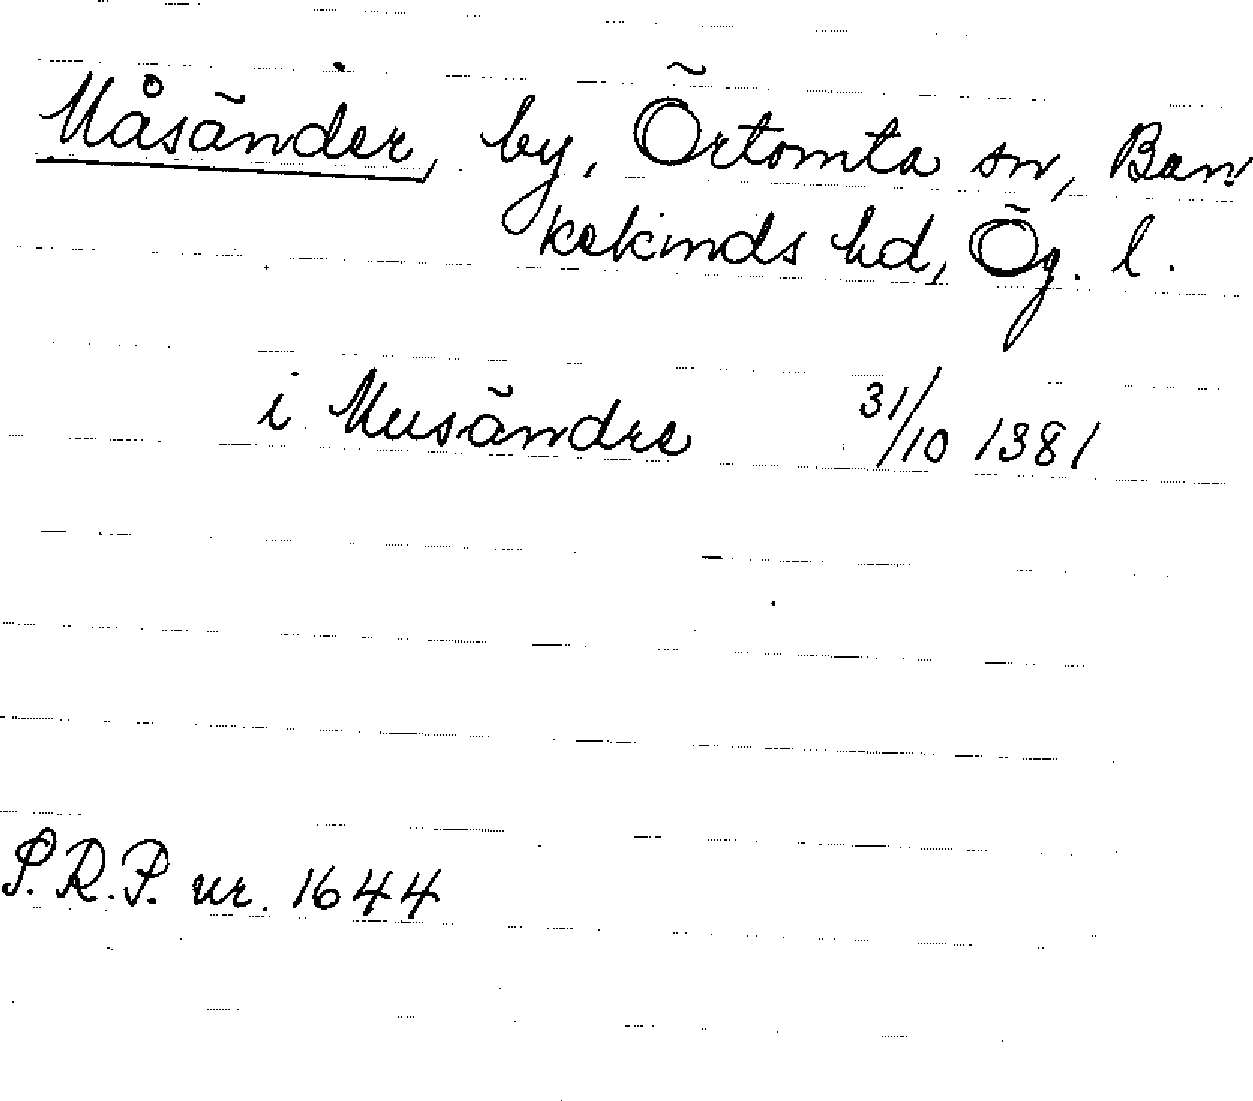 Måsänder, by, Örtomta sn, Ban-
kekinds hd, Ög. l.
i Musändre 31/10 1381
S.R.P. nr. 1644